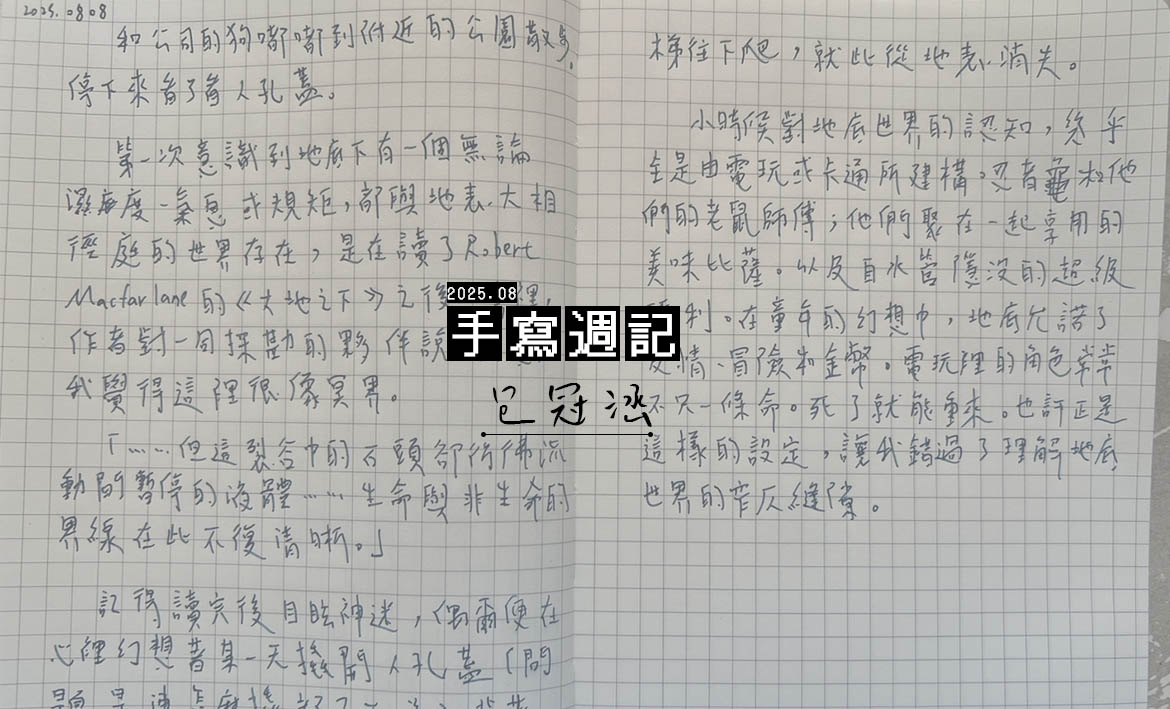 2025.0808
和公司的狗嘟嘟到附近的公園散步,
停下來看了看人孔蓋。
第一次意識到地底下有一個無論
濕度、氣息或規矩,都與地表大相
徑庭的世界存在,是在讀了Robert
Macfarlane的《大地之下》之後。裡,
作者對一同探勘的夥伴說
我覺得這裡很像冥界。
「……但這裂谷中的石頭卻彷彿流
動間暫停的液體……生命與非生命的
界線在此不復清晰。」
記得讀完後目眩神迷,偶爾便在
心裡幻想著某一天撬開人孔蓋(問
題是
2025.08
手寫週記
包冠涵
梯往下爬,就此從地表消失。
小時候對地底世界的認知,幾乎
全是由電玩或卡通所建構。忍者龜和他
們的老鼠師傅;他們聚在一起享用的
美味比薩。以及自水管隱沒的超級
利。在童年的幻想中,地底允諾了
友情、冒險和金幣。電玩裡的角色常常
不只一條命。死了就能重來。也許正是
這樣的設定,讓我錯過了理解地底
世界的窄仄縫隙。